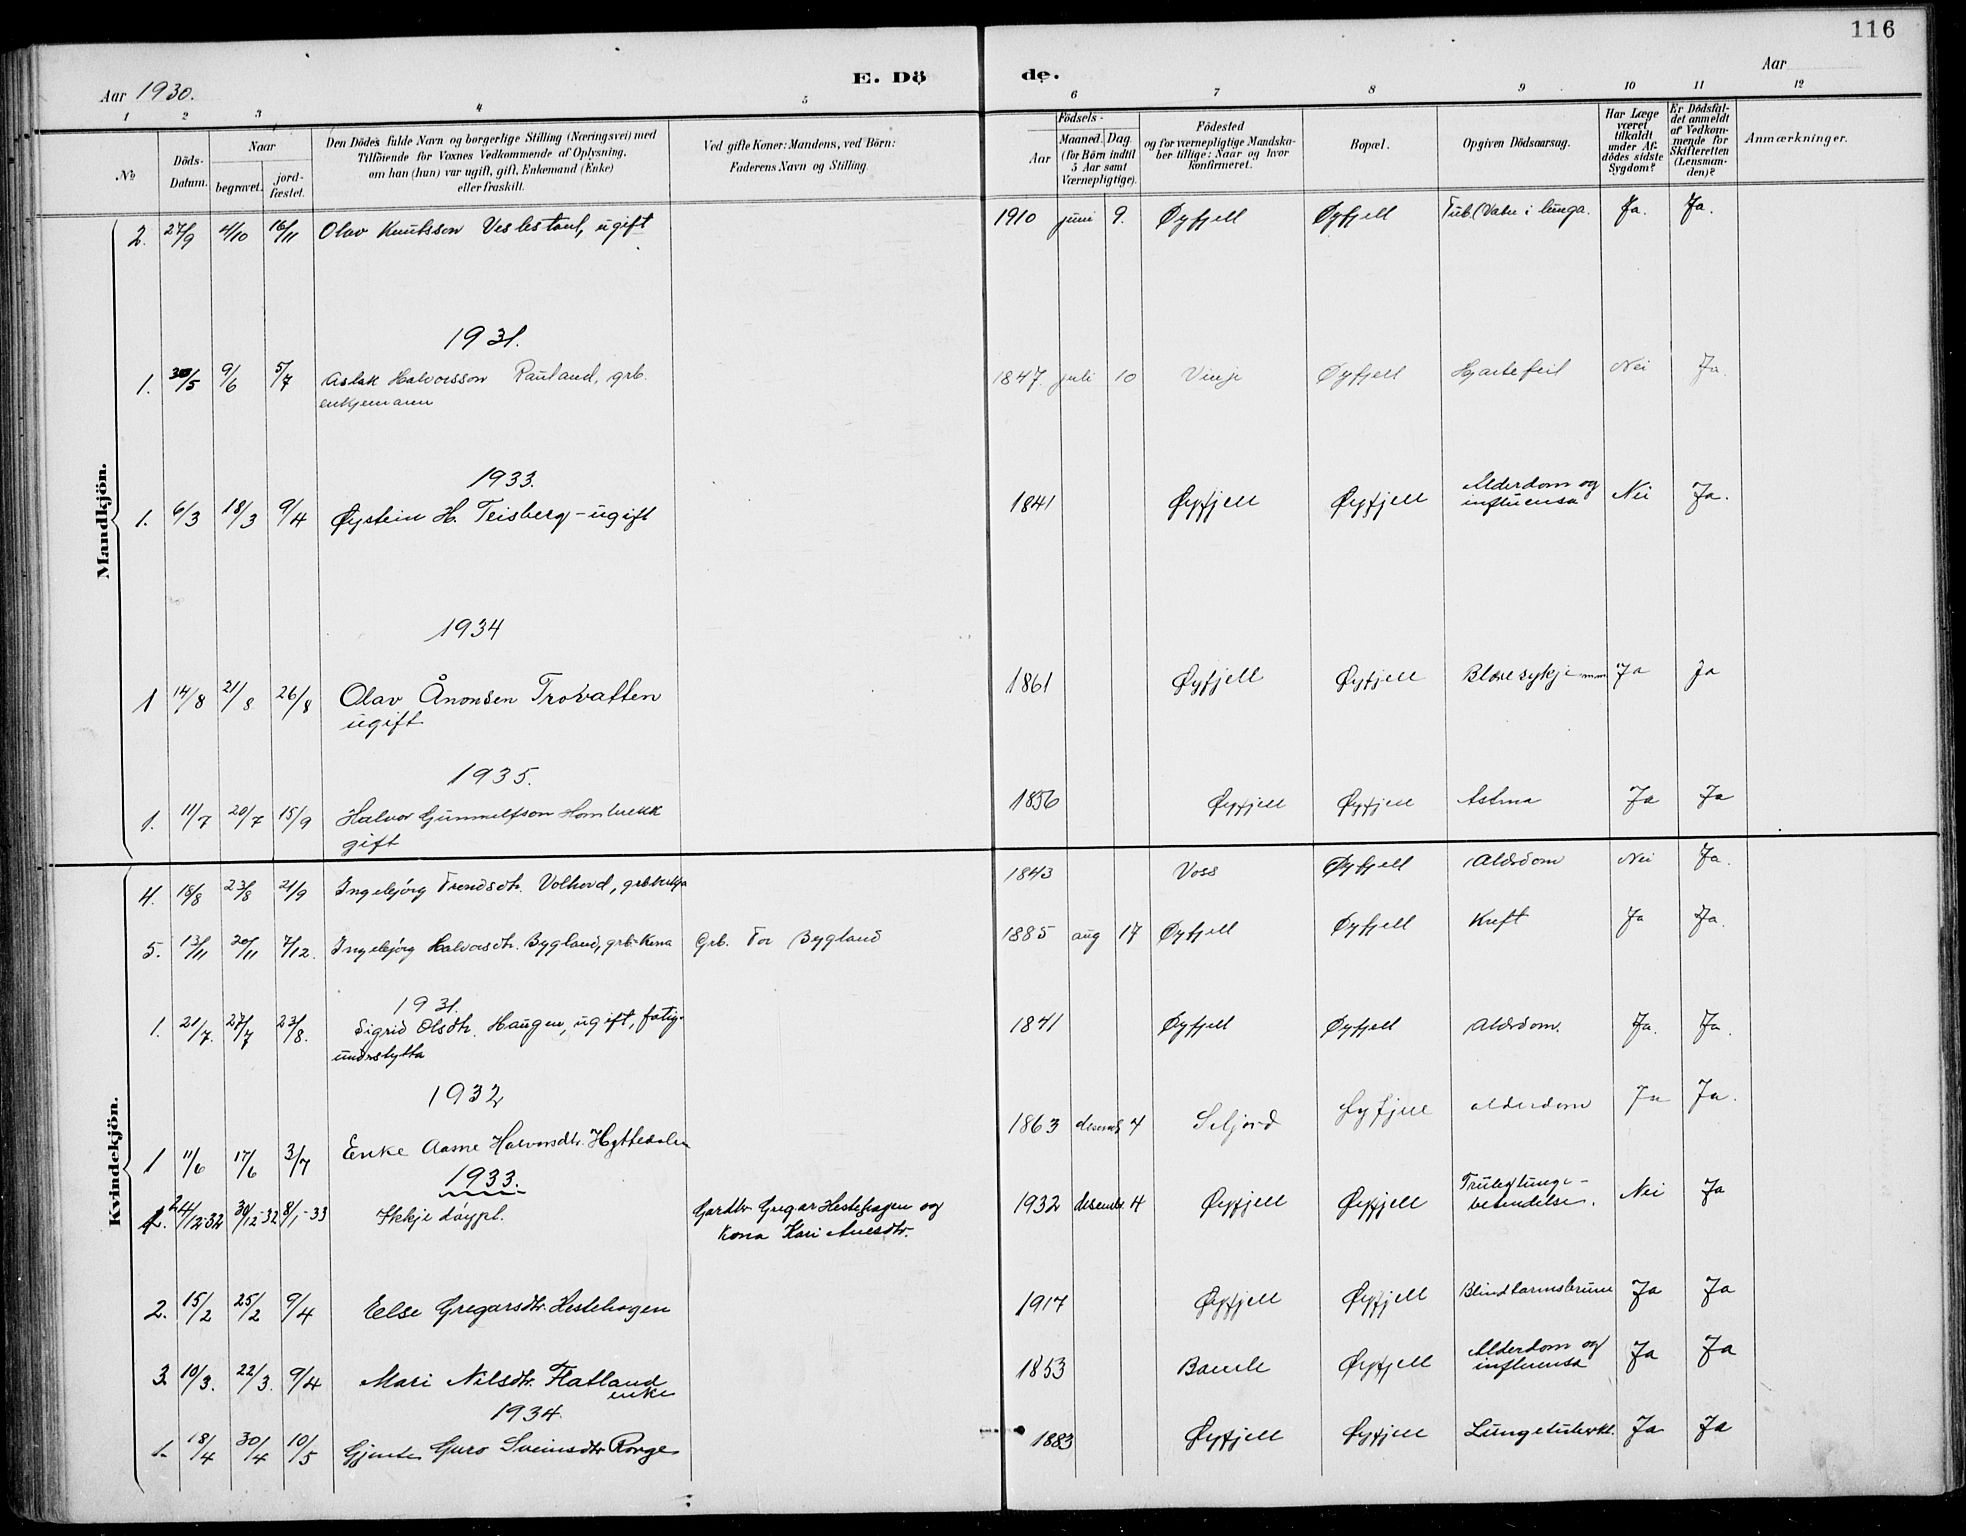 116
Aar 1930.
E. Dö
de.
Aar
1 2 3 4 5 6 7 8 9 10 11 12
No
Döds-Datum.
Naar
begravet.
jord-fæstet.
Den Dödes fulde Navn og borgerlige Stilling (Næringsvei) med
Tilföiende for Voxnes Vedkommende af Oplysning,
om han (hun) var ugift, gift, Enkemand (Enke)
eller fraskilt.
Ved gifte Koner: Mandens, ved Börn:
Faderens Navn og Stilling.
Födsels-
Aar
Maaned. Dag.
(for Börn indtil
5 Aar samt
Værnepligtige).
Födested
og for værnepligtige Mandska-
ber tillige: Naar og hvor
konfirmeret.
Bopæl.
Opgiven Dödsaarsag.
Har Læge
været
tilkaldt
under Af-
dödes sidste
Sygdom?
Er Dödsfal-
det anmeldt
af Vedkom-
mende for
Skifteretten
(Lensman-
den)?
Anmærkninger.
Mandkjön.
2. 27/9 4/10 16/11 Olav Knutsson Veslestaul, ugift 1910 juni 9. Øyfjell Øyfjell Tub. (Vatn i lunga. Ja. Ja.
1931.
1. 30/5 9/6 5/7 Aslak Halvorsson Rauland, grb. 1847 juli 10 Vinje Øyfjell Hjartefeil Nei Ja.
enkjemann
1933.
1. 6/3 18/3 9/4 Øystein H. Teisberg - ugift 1841 Øyfjell Øyfjell Alderdom og influensa Nei Ja.
1934
1 14/8 21/8 26/8 Olav Ånonsen Trovatten 1861 Øyfjell Øyfjell Blæresykje m.m. Ja Ja
ugift
1935.
1. 11/7 20/7 15/9 Halvor Gunnulfson 1856 Øyfjell Øyfjell Astma Ja Ja
gift
Kvindekjön.
4. 18/8 23/8 21/9 Ingebjörg Trondsdtr. Volhovd, 1843 Voss Øyfjell Alderdom Nei Ja.
5. 13/11 20/11 7/12. Ingebjörg Halvorsdtr. Bygland, grb.kona Grb. Tor Bygland 1885 aug 17 Øyfjell Øyfjell Kreft Ja Ja.
1931.
1. 21/7. 27/7 23/8. Sigrid Olsdtr. Haugen, ugift, fatig- 1841 Øyfjell Øyfjell Alderdom. Ja. Ja.
understytta
1932
1 11/6 17/6 3/7 Enke Aasne Halvorsdtr. Hyttedalen 1863 desemb. 4 Seljord Øyfjell alderdom Ja Ja.
1933.
1. 24/12-32 30/12-32 8/1-33 Ikkje döypt. Gardbr. Gregar Hestehagen og 1932 desember 4 Øyfjell Øyfjell Truleg lunge- Nei Ja
kona Kari betendelse.
2. 15/2 25/2 9/4 Else Gregarsdtr. Hestehagen 1917 Øyfjell Øyfjell Blindtarmsbrune Ja Ja
3. 10/3. 22/3. 9/4 Mari Nilsdtr. Flatland 1853 Bamle Øyfjell Alderdom og influensa Ja Ja
enke
1934.
1. 18/4 30/4 10/5 Gjente Guro Sveinsdtr. Rorge 1883 Øyfjell Øyfjell Lungetuberkl. Ja Ja